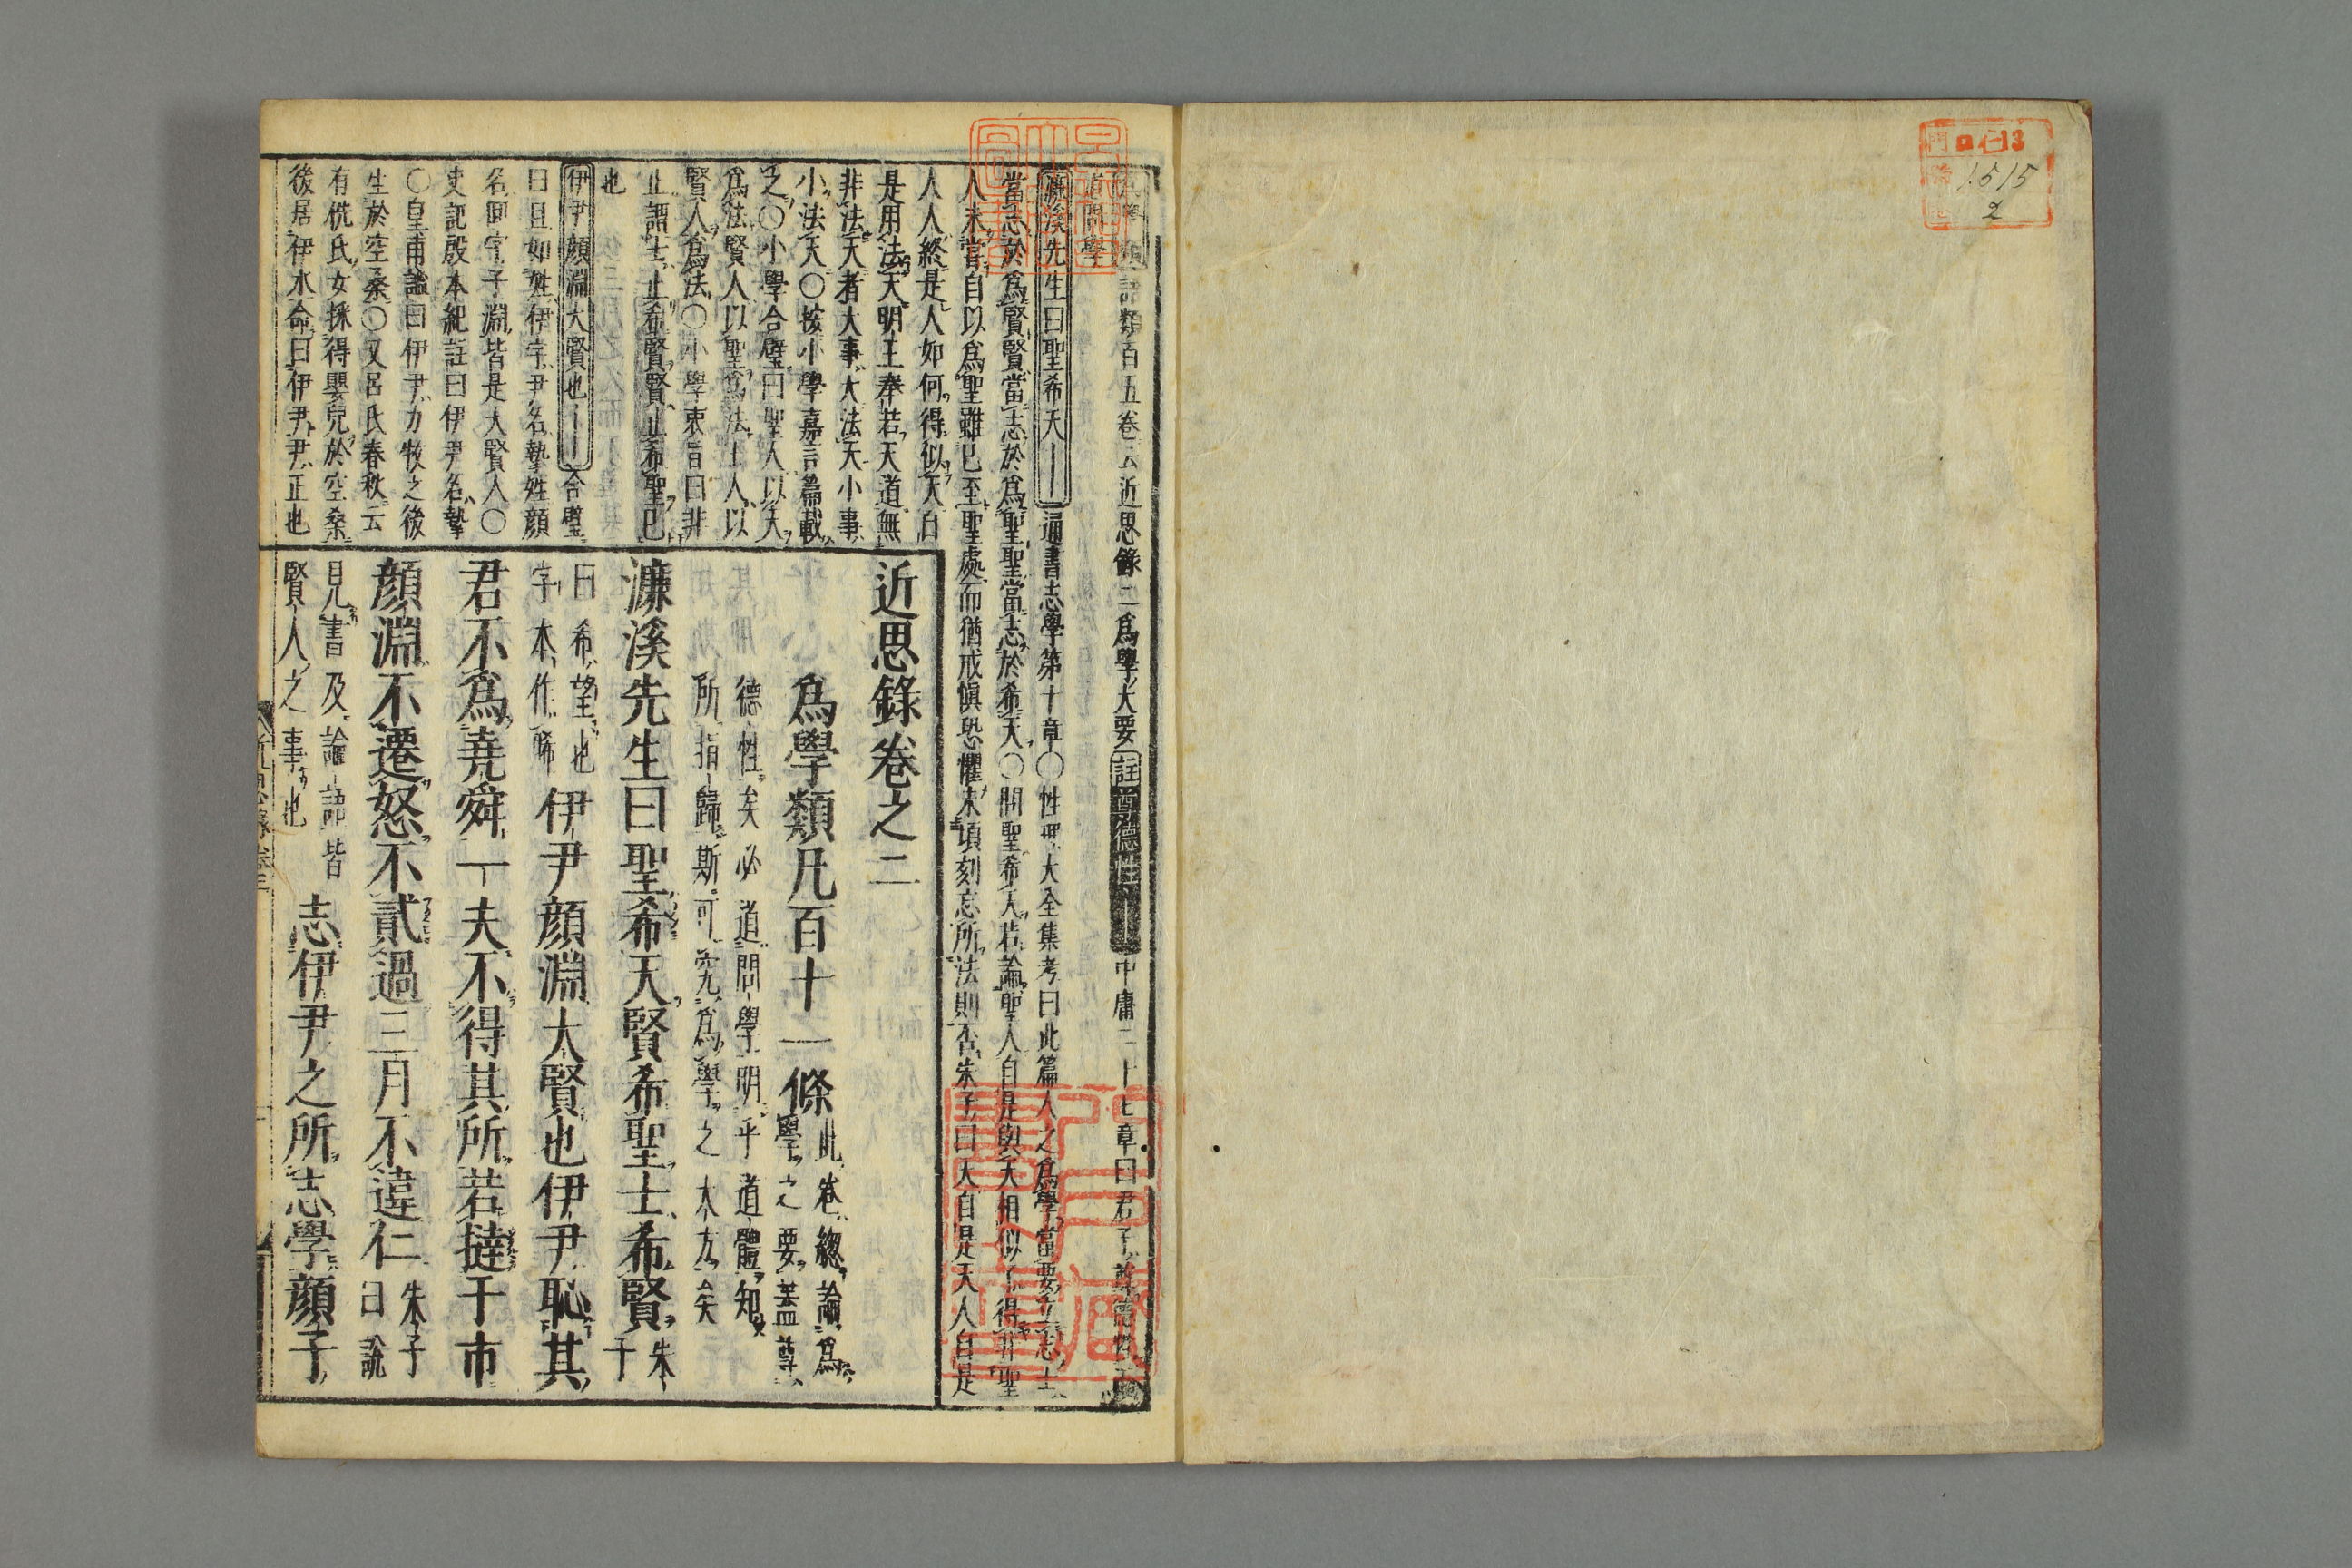 語類百五卷云近思錄二爲學大要註尊德性中庸二十七章曰君子尊德性而
道問學
濂溪先生曰聖希天通書志學第十章○性理大全集考曰此篇人之爲學當要立志士
當志於爲賢賢當志於爲聖聖當志於希天○問聖希天若論聖人自是與天相似了得非聖
人未嘗自以爲聖雖已至聖處而猶戒愼恐懼未頃刻忘所法則否朱子曰天自是天人自是
人人終是人如何得似天自
是用法天明王奉若天道無
非法天者大事大法天小事
小法天○按小學嘉言篇載
之○小學合璧曰聖人以天
爲法賢人以聖爲法士人以
賢人爲法○小學東旨曰非
止謂士止希賢賢止希聖已
也
伊尹顏淵大賢也合璧
曰且如姓伊字尹名摯姓顏
名回字子淵皆是大賢人○
史記殷本紀註曰伊尹名摯
○皇甫謐曰伊尹力牧之後
生於空桑○又呂氏春秋云
有侁氏女採得嬰兒於空桑
後居伊水命曰伊尹尹正也
近思錄卷之二
爲學類凡百十一條此卷總論爲
學之要蓋尊
德性矣必道問學明乎道體知
所指歸斯可究爲學之大方矣
濂溪先生曰聖希天賢希聖士希賢朱
子
曰希望也
字本作睎
伊尹顏淵大賢也伊尹恥其
君不爲堯舜一夫不得其所若撻于市
顏淵不遷怒不貳過三月不違仁朱子
曰說
見書及論語皆
賢人之事也
志伊尹之所志學顏子
近思錄卷二
1515
2